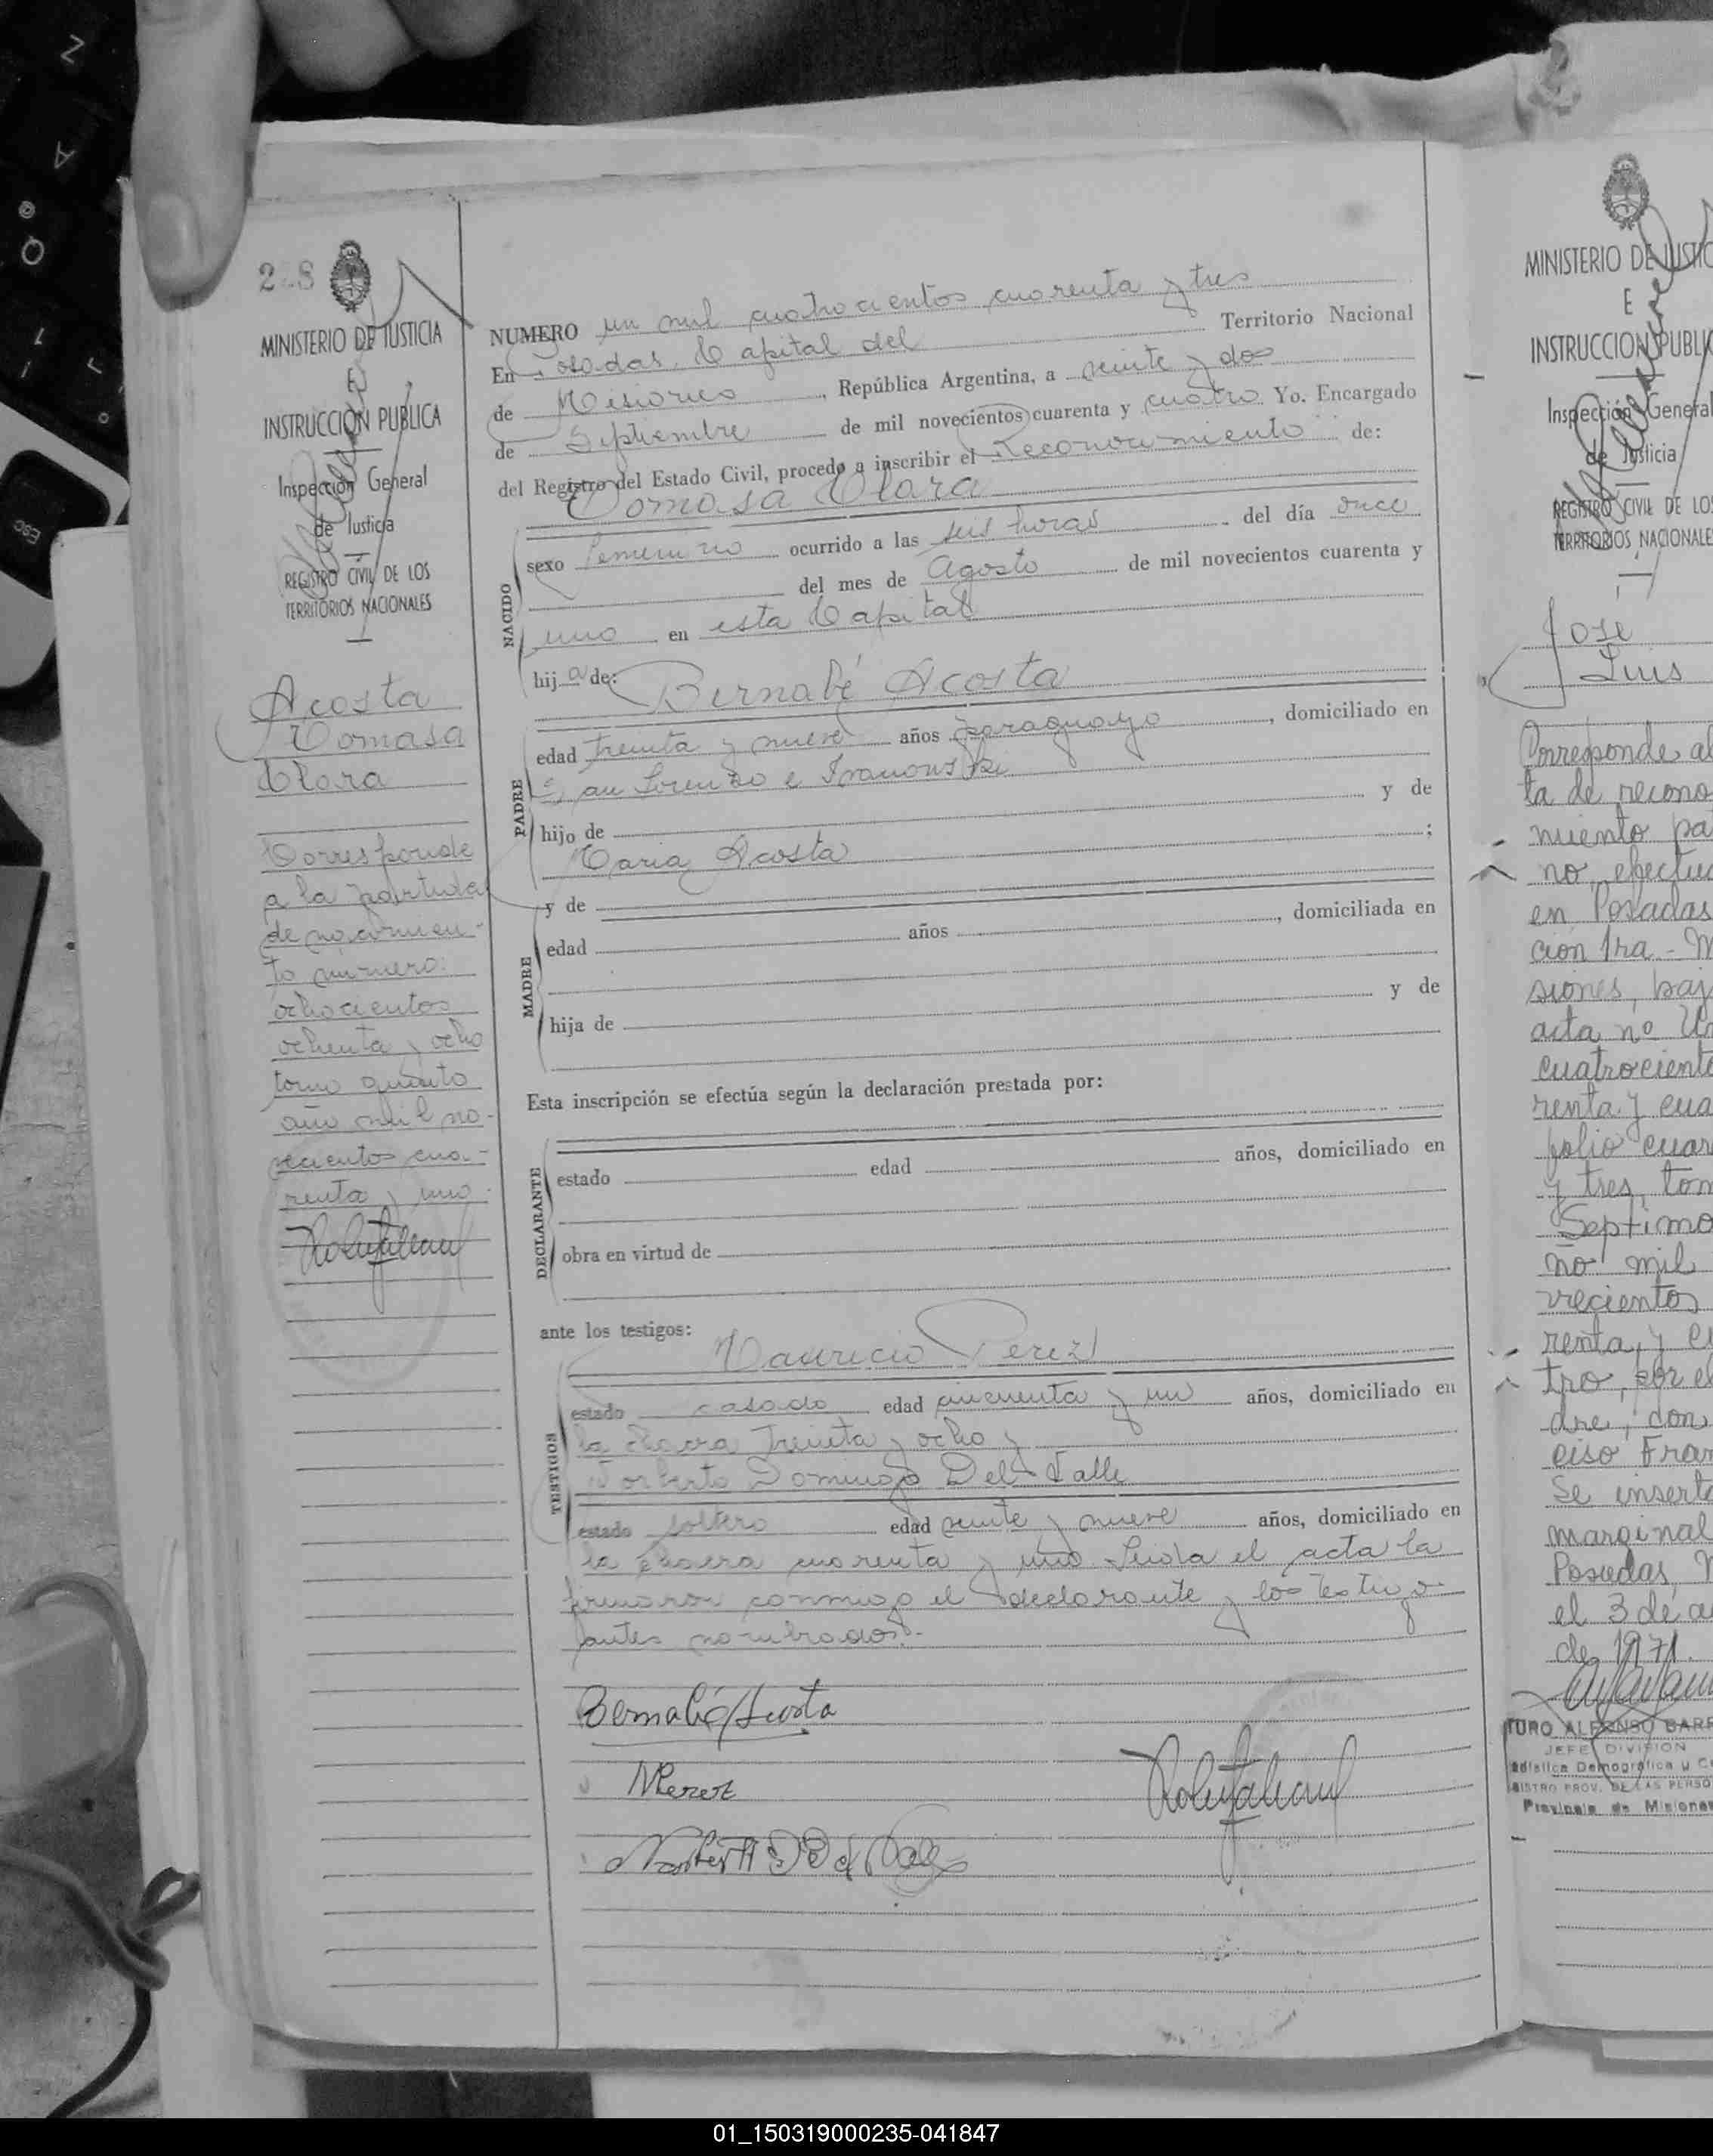 228
MINISTERIO DE JUSTICIA
E
INSTRUCCION PUBLICA
Inspección General
de Justicia
REGISTRO CIVIL DE LOS
TERRITORIOS NACIONALES
Acosta
Tomasa
Clara
Corresponde
a la partida
de nacimien-
to número
ochocientos
ochenta y ocho
tomo quinto
año mil no-
vecientos cua-
renta y uno.
NUMERO un mil cuatrocientos cuarenta y tres
En Posadas, Capital del Territorio Nacional
de Misiones, República Argentina, a veinte y dos
de Septiembre de mil novecientos cuarenta y cuatro Yo. Encargado
del Registro del Estado Civil, procedo a inscribir el Reconocimiento de:
Tomasa Clara
NACIDO
sexo femenino ocurrido a las seis horas del día once
del mes de Agosto de mil novecientos cuarenta y
uno en esta Capital
hija de: Bernabé Acosta
PADRE
edad treinta y nueve años paraguayo, domiciliado en
San Lorenzo e
hijo de y de
Maria Acosta ;
y de
MADRE
edad años , domiciliada en
hija de y de
Esta inscripción se efectúa según la declaración prestada por:
DECLARANTE
estado edad años, domiciliado en
obra en virtud de
ante los testigos:
Mauricio Perez
TESTIGOS
estado casado edad cincuenta y un años, domiciliado en
la chacra treinta y ocho y
Norberto Domingo Del Valle
estado soltero edad veinte y nueve años, domiciliado en
la chacra cuarenta y uno. Leida el acta la
firmaron conmigo el declarante y los testigos
antes nombrados.-
Bernabé Acosta
MPerez
MINISTERIO DE JUSTIC
E
INSTRUCCION PUBLI
Inspección General
de Justicia
REGISTRO CIVIL DE LOS
TERRITORIOS NACIONALE
José
Luis
Corresponde al
ta de recono
miento pa
no, efectua
en Posadas
ción 1ra - M
siones, baj
acta nº
cuatrociento
renta y cua
folio cuar
y tres, tom
Septimo
no mil
vecientos
renta y cu
tro, por el
dre, don
ciso Fran
Se inserta
marginal
Posadas, M
el 3 de a
de 1971.
TURO ALFONSO BARR
JEFE DIVISION
adistica Demográfica y C
ISTRO PROV. DE LAS PERSO
Provincia de Misiones
01_150319000235-041847